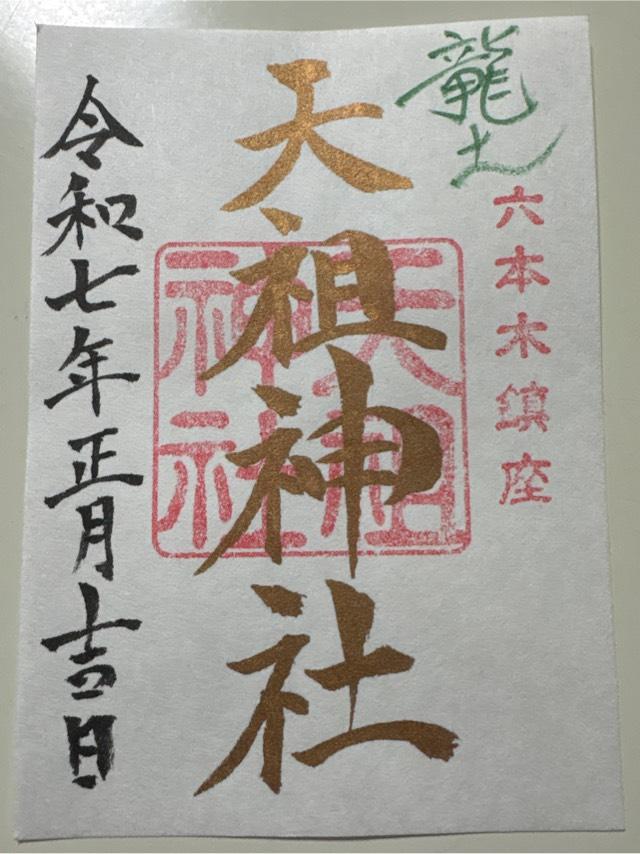 龍土
六本木鎮座
天祖神社
天祖神社
令和七年正月吉日